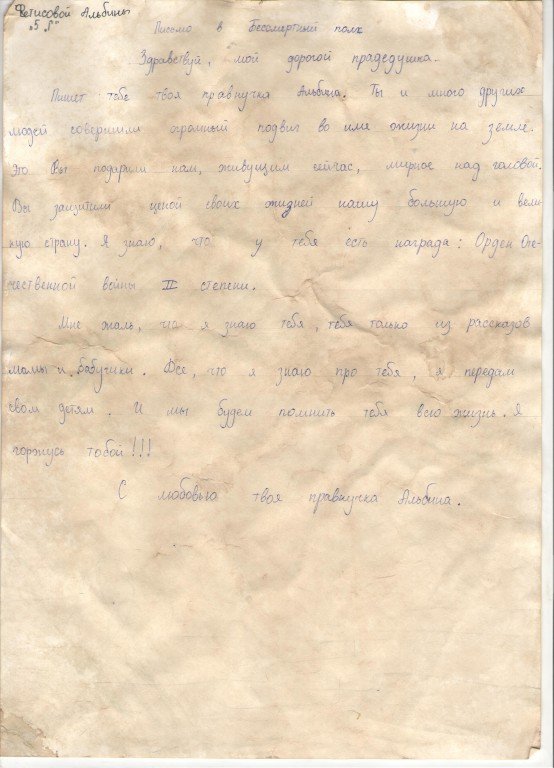 Фетисовой Альбины
"5 Г"
Письмо в Бессмертный полк
Здравствуй, мой дорогой прадедушка.
Пишет тебе твоя правнучка Альбина. Ты и много других
людей совершили огромный подвиг во имя жизни на земле.
Это Вы подарили нам, живущим сейчас, мирное над головой.
Вы защитили ценой своих жизней нашу большую и вели
кую страну. Я знаю, что у тебя есть награда: Орден Оте-
чественной войны II степени.
Мне жаль, что я знаю тебя, тебя только из рассказов
мамы и бабушки. Все, что я знаю про тебя, я передам
свом детям. И мы будем помнить тебя всю жизнь. Я
горжусь тобой!!!
С любовью твоя правнучка Альбина.